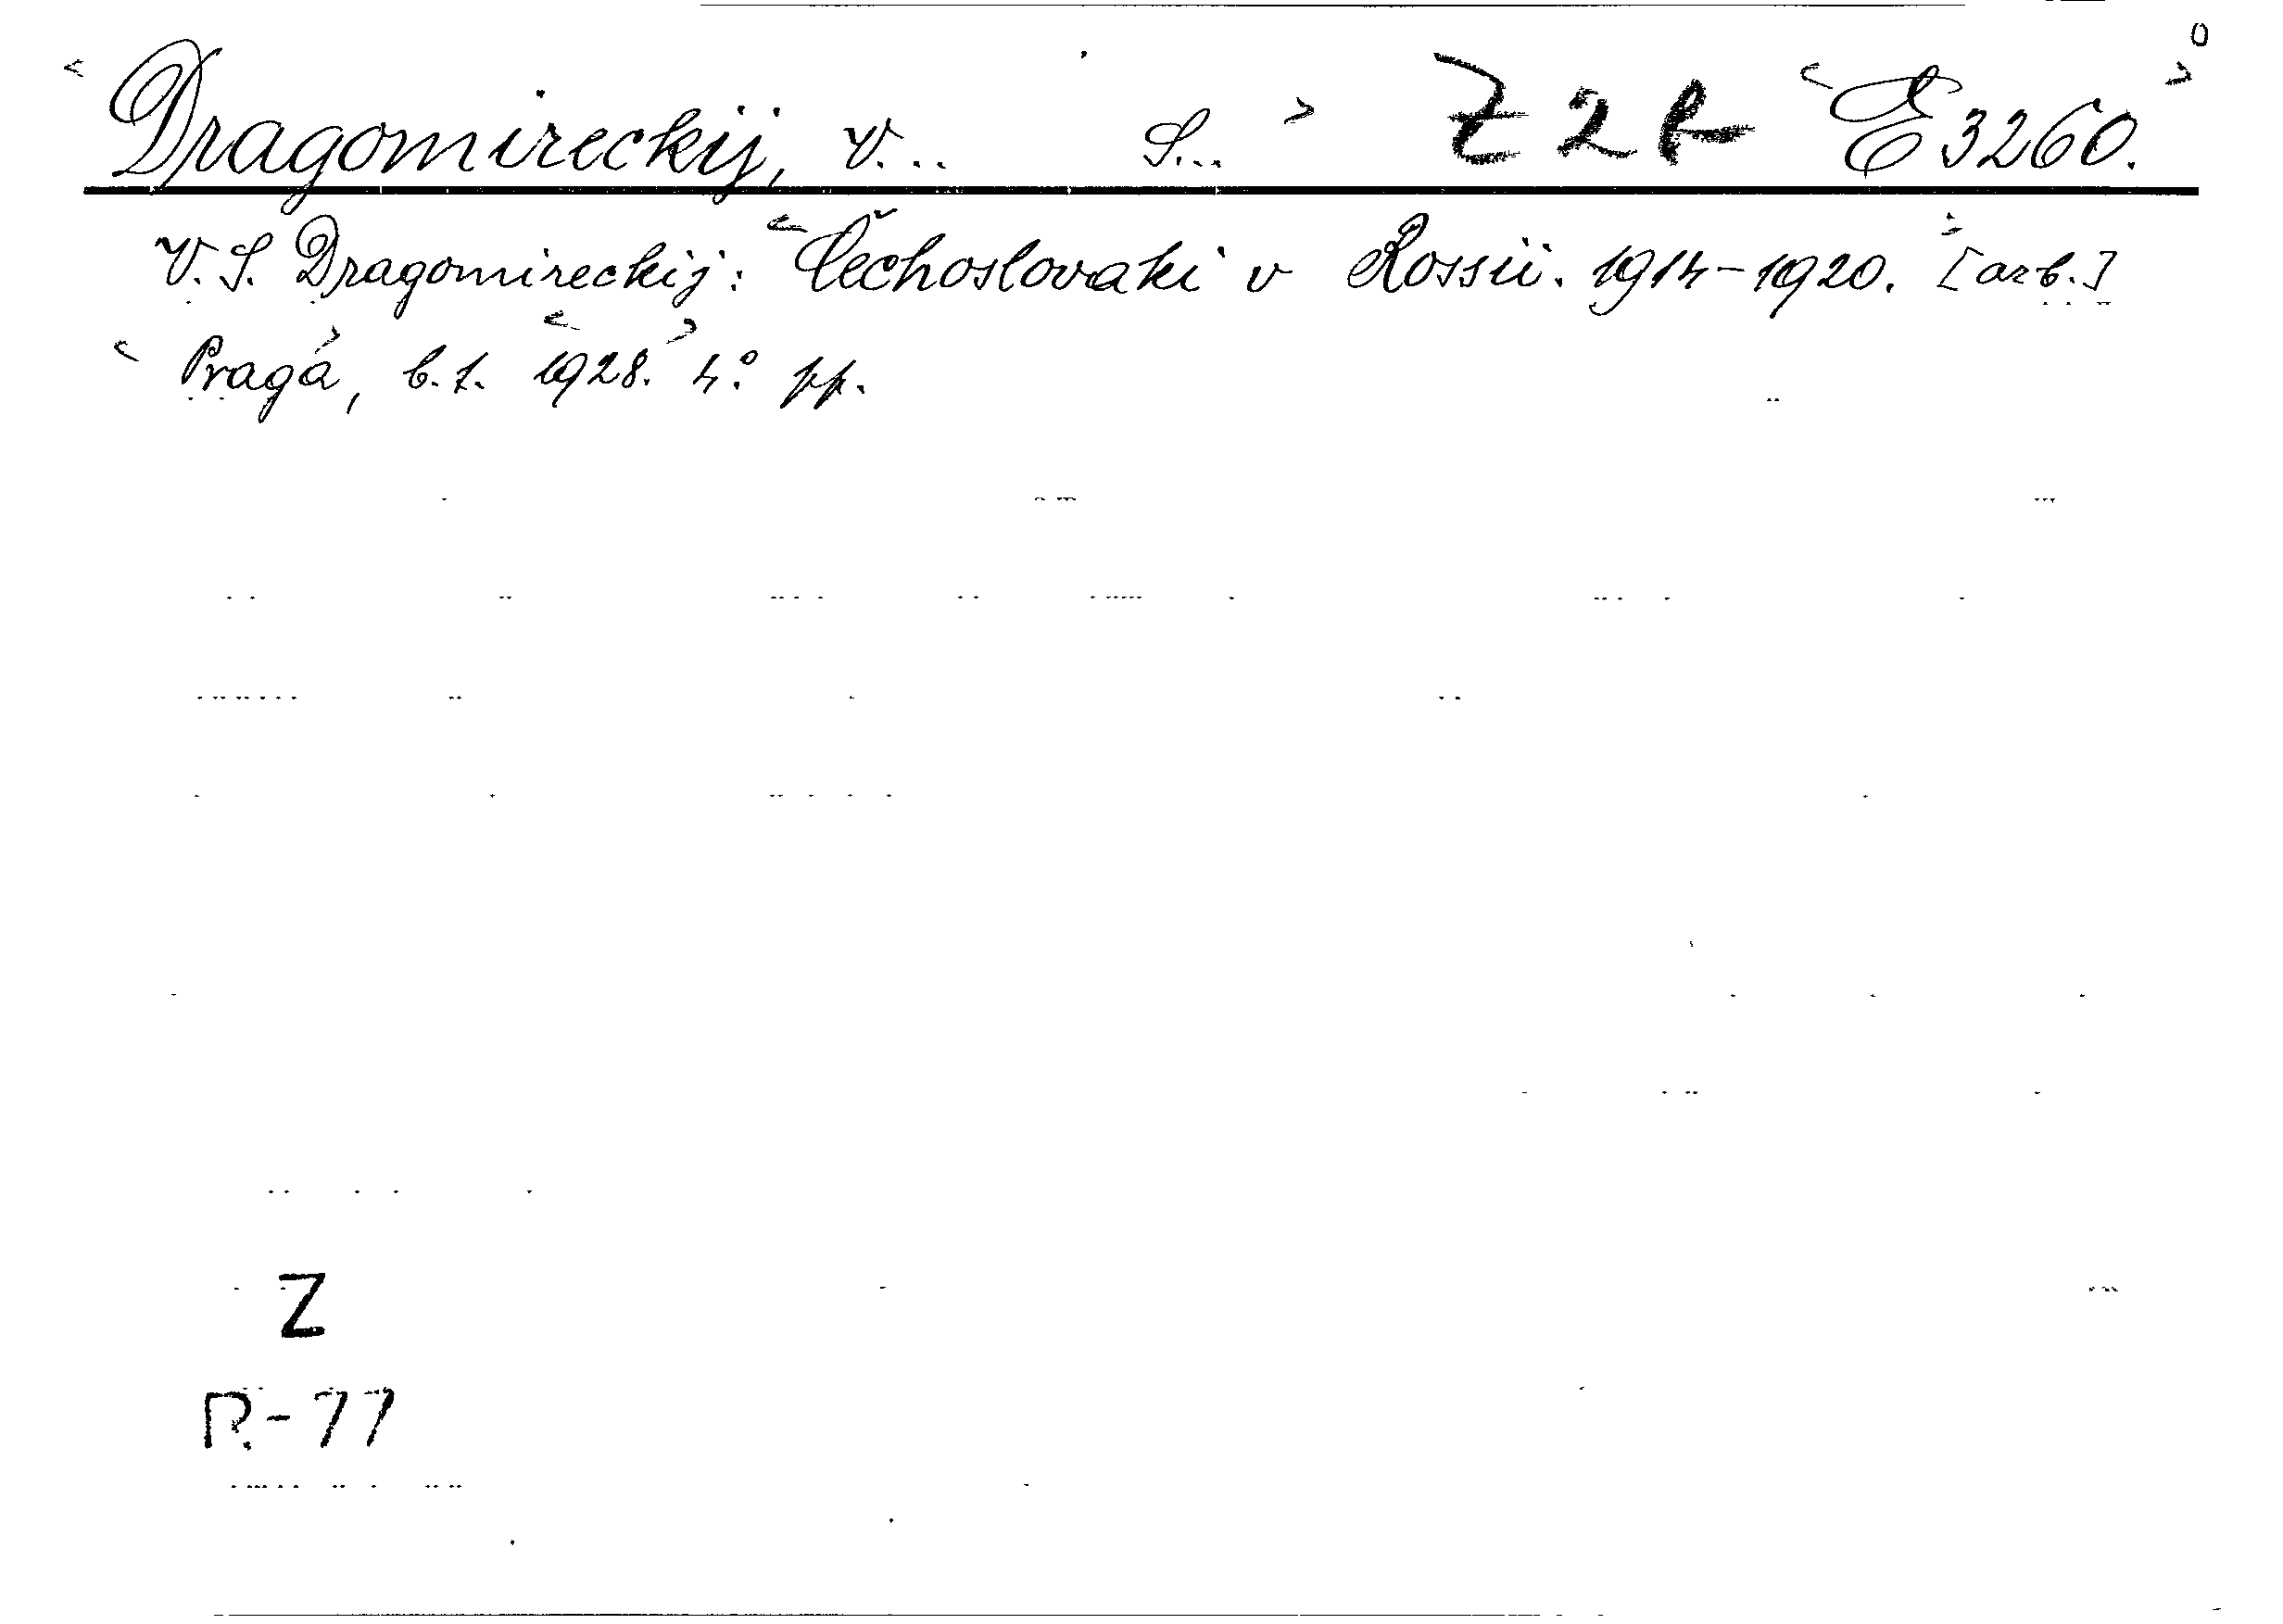 Dragomireckij, V... S... Z2R E3260.
V. S. Dragomireckij: Čechoslovaki v Rossii. 1914-1920. [azb.]
Praga, b. t. 1928. 4° pp.
Z
R-77